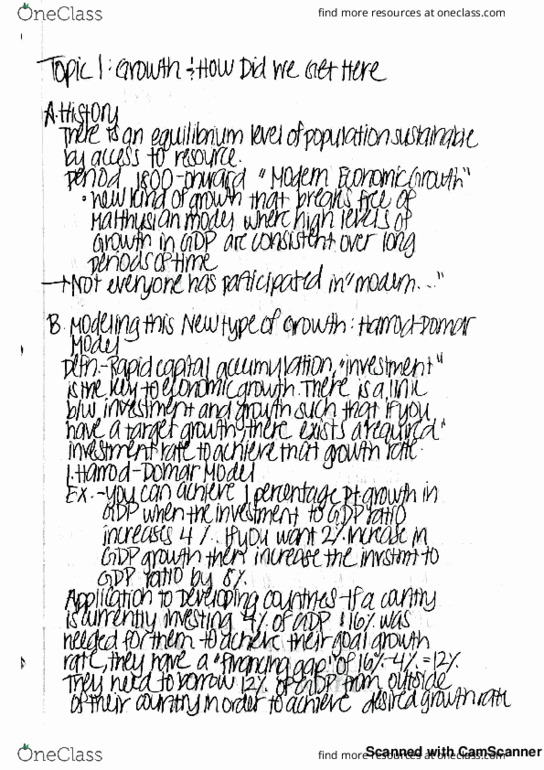 OneClass
find more resources at oneclass.com
Topic 1: Growth & How Did We Get Here
A. History
There is an equilibrium level of population sustainable
by access to resource.
Period 1800-onward "Modern Economic Growth"
• new kind of growth that breaks free of
Malthusian model where high levels of
growth in GDP are consistent over long
periods of time
→ Not everyone has participated in "modern..."
B. Modeling this New type of Growth: Harrod-Domar
Model
Defn.-Rapid capital accumulation, "investment"
is the key to economic growth. There is a link
b/w investment and growth such that if you
have a target growth, there exists a "required"
investment rate to achieve that growth rate.
1. Harrod-Domar Model
Ex.-you can achieve 1 percentage pt growth in
GDP when the investment to GDP ratio
increases 4%. If you want 2% increase in
GDP growth then increase the invstmt to
GDP ratio by 8%.
Application to Developing countries-If a country
is currently investing 4% of GDP & 16% was
needed for them to achieve their goal growth
rate, they have a "financing gap" of 16%-4%=12%.
They need to borrow 12% of GDP from outside
of their country in order to achieve desired growth rate
OneClass
find more resources at oneclass.com
Scanned with CamScanner